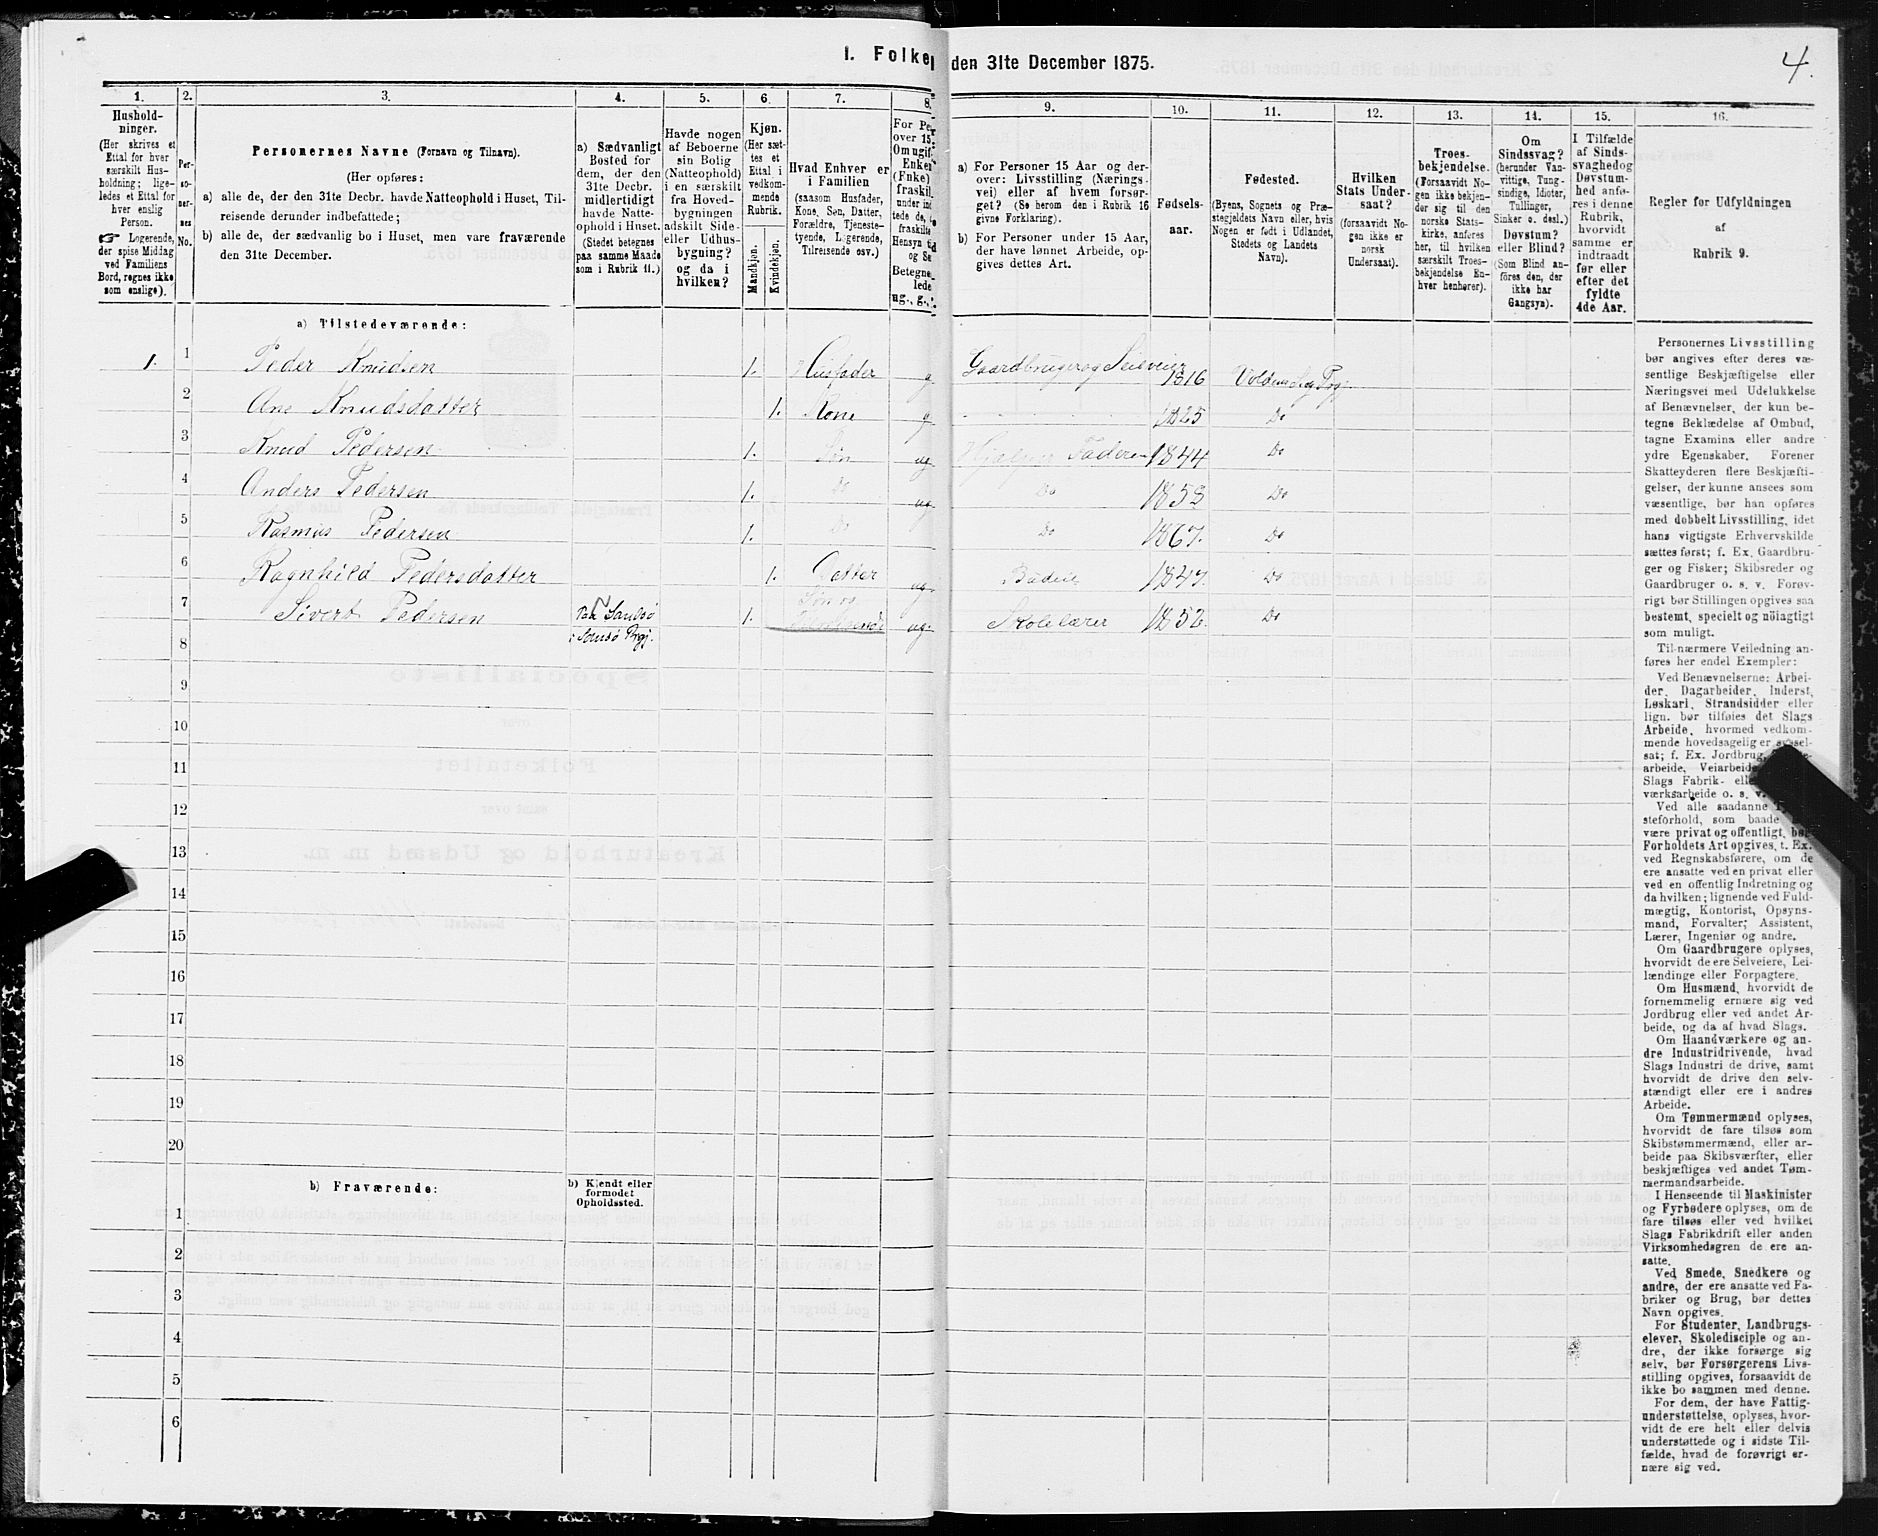 I. Folke
den 31te December 1875.
4.
1.
Hushold-
ninger.
(Her skrives et
Ettal for hver
særskilt Hus-
holdning; lige-
ledes et Ettal for
hver enslig
Person.
☞ Logerende,
der spise Middag
ved Familiens
Bord, regnes ikke
som enslige).
2.
Per-
so-
ner-
nes
No.
3.
Personernes Navne (Fornavn og Tilnavn).
(Her opføres:
a) alle de, der den 31te Decbr. havde Natteophold i Huset, Til-
reisende derunder indbefattede;
b) alle de, der sædvanlig bo i Huset, men vare fraværende
den 31te December.
4.
a) Sædvanligt
Bosted for
dem, der den
31te Decbr.
midlertidigt
havde Natte-
ophold i Huset.
(Stedet betegnes
paa samme Maade
som i Rubrik 11.)
5.
Havde nogen
af Beboerne
sin Bolig
(Natteophold)
i en særskilt
fra Hoved-
bygningen
adskilt Side-
eller Udhus-
bygning?
og da i
hvilken?
6.
Kjøn.
(Her sæt-
tes et
Ettal i
vedkom-
mende
Rubrik.
Mandkjøn.
Kvindekjøn.
7.
Hvad Enhver er
i Familien
(saasom Husfader,
Kone, Søn, Datter,
Forældre, Tjeneste-
tyende, Logerende,
Tilreisende osv.)
8.
For Pe
over 15
Om ugif
Enke
(Fnke)
fraskil
under ind
tede de,
fraskilte
Hensyn
og Se
Betegne
lede
ug., g.,
9.
a) For Personer 15 Aar og der-
over: Livsstilling (Nærings-
vei) eller af hvem forsør-
get? (Se herom den i Rubrik 16
givne Forklaring).
b) For Personer under 15 Aar,
der have lønnet Arbeide, op-
gives dettes Art.
10.
Fødsels-
aar.
11.
Fødested.
(Byens, Sognets og Præ-
stegjeldets Navn eller, hvis
Nogen er født i Udlandet,
Stedets og Landets
Navn).
12.
Hvilken
Stats Under-
saat?
(forsaavidt No-
gen ikke er
norsk
Undersaat).
13.
Troes-
bekjendelse.
(Forsaavidt No-
gen ikke bekjen-
der sig til den
norske Stats-
kirke, anføres
her, til hvilken
særskilt Troes-
bekjendelse En-
hver henhører).
14.
Om
Sindssvag?
(herunder Van-
vittige, Tung-
sindige, Idioter,
Tullinger,
Sinker o. desl.)
Døvstum?
eller Blind?
(Som Blind an-
føres den, der
ikke har
Gangsyn).
15.
I Tilfælde
af Sinds-
svaghed og
Døvstum-
hed anfø-
res i denne
Rubrik,
hvorvidt
samme er
indtraadt
før eller
efter det
fyldte
4de Aar.
16.
Regler for Udfyldningen
af
Rubrik 9.
a) Tilstedeværende:
1. 1 Peder Knudsen 1. Husfader g Gaardbruger og Selveier 1816
2 Ane Knudsdatter 1. Kone g 1825 Do
3 Knud Pedersen 1. Søn ug. Hjelper Faderen 1844 Do
4 Anders Pedersen 1. Do ug. Do 1858 Do
5 Rasmus Pedersen 1. Do Do 1867. Do
6 Ragnhild Pedersdatter 1. Datter ug. 1847. Do
7 Sivert Pedersen 1. ug. Skolelærer 1852. Do
8
9
10
11
12
13
14
15
16
17
18
19
20
b) Fraværende:
b) Kjendt eller
formodet
Opholdssted.
1
2
3
4
5
6
Personernes Livsstilling
bør angives efter deres væ-
sentlige Beskjæftigelse eller
Næringsvei med Udelukkelse
af Benævnelser, der kun be-
tegne Beklædelse af Ombud,
tagne Examina eller andre
ydre Egenskaber. Forener
Skatteyderen flere Beskjæfti-
gelser, der kunne ansees som
væsentlige, bør han opføres
med dobbelt Livsstilling, idet
hans vigtigste Erhvervskilde
sættes først; f. Ex. Gaardbru-
ger og Fisker; Skibsreder og
Gaardbruger o. s. v. Forøv-
rigt bør Stillingen opgives saa
bestemt, specielt og nöiagtigt
som muligt.
Til nærmere Veiledning an-
føres her endel Exempler:
Ved Benævnelserne: Arbei-
der, Dagarbeider, Inderst,
Løskarl, Strandsidder eller
lign. bør tilføies det Slags
Arbeide, hvormed vedkom-
mende hovedsagelig er syssel-
sat; f. Ex. Jordbrug,
arbeide, Veiarbeide
Slags Fabrik- elle
værksarbeide o. s. v.
Ved alle saadanne
steforhold, som baade
være privat og offentligt, bør
Forholdets Art opgives, t. Ex.
ved Regnskabsførere, om de
ere ansatte ved en privat eller
ved en offentlig Indretning og
da hvilken; lignende ved Fuld-
mægtig, Kontorist, Opsyns-
mand, Forvalter, Assistent,
Lærer, Ingeniør og andre.
Om Gaardbrugere oplyses,
hvorvidt de ere Selveiere, Lei-
lændinge eller Forpagtere.
Om Husmænd, hvorvidt de
fornemmelig ernære sig ved
Jordbrug eller ved andet Ar-
beide, og da af hvad Slags.
Om Haandværkere og an-
dre Industridrivende, hvad
Slags Industri de drive, samt
hvorvidt de drive den selv-
stændigt eller ere i andres
Arbeide.
Om Tømmermænd oplyses,
hvorvidt de fare tilsøs som
Skibstømmermænd, eller ar-
beide paa Skibsværfter, eller
beskjæftiges ved andet Tøm-
mermandsarbeide.
I Henseende til Maskinister
og Fyrbødere oplyses, om de
fare tilsøs eller ved hvilket
Slags Fabrikdrift eller anden
Virksomhedsgren de ere an-
satte.
Ved Smede, Snedkere og
andre, der ere ansatte ved Fa-
briker og Brug, bør dettes
Navn opgives.
For Studenter, Landbrugs-
elever, Skoledisciple og an-
dre, der ikke forsørge sig
selv, bør Forsørgerens Livs-
stilling opgives, forsaavidt de
ikke bo sammen med denne.
For dem, der have Fattig-
understøttelse, oplyses, hvor-
vidt de ere helt eller delvis
understøttede og i sidste Til-
fælde, hvad de forøvrigt er-
nære sig ved.